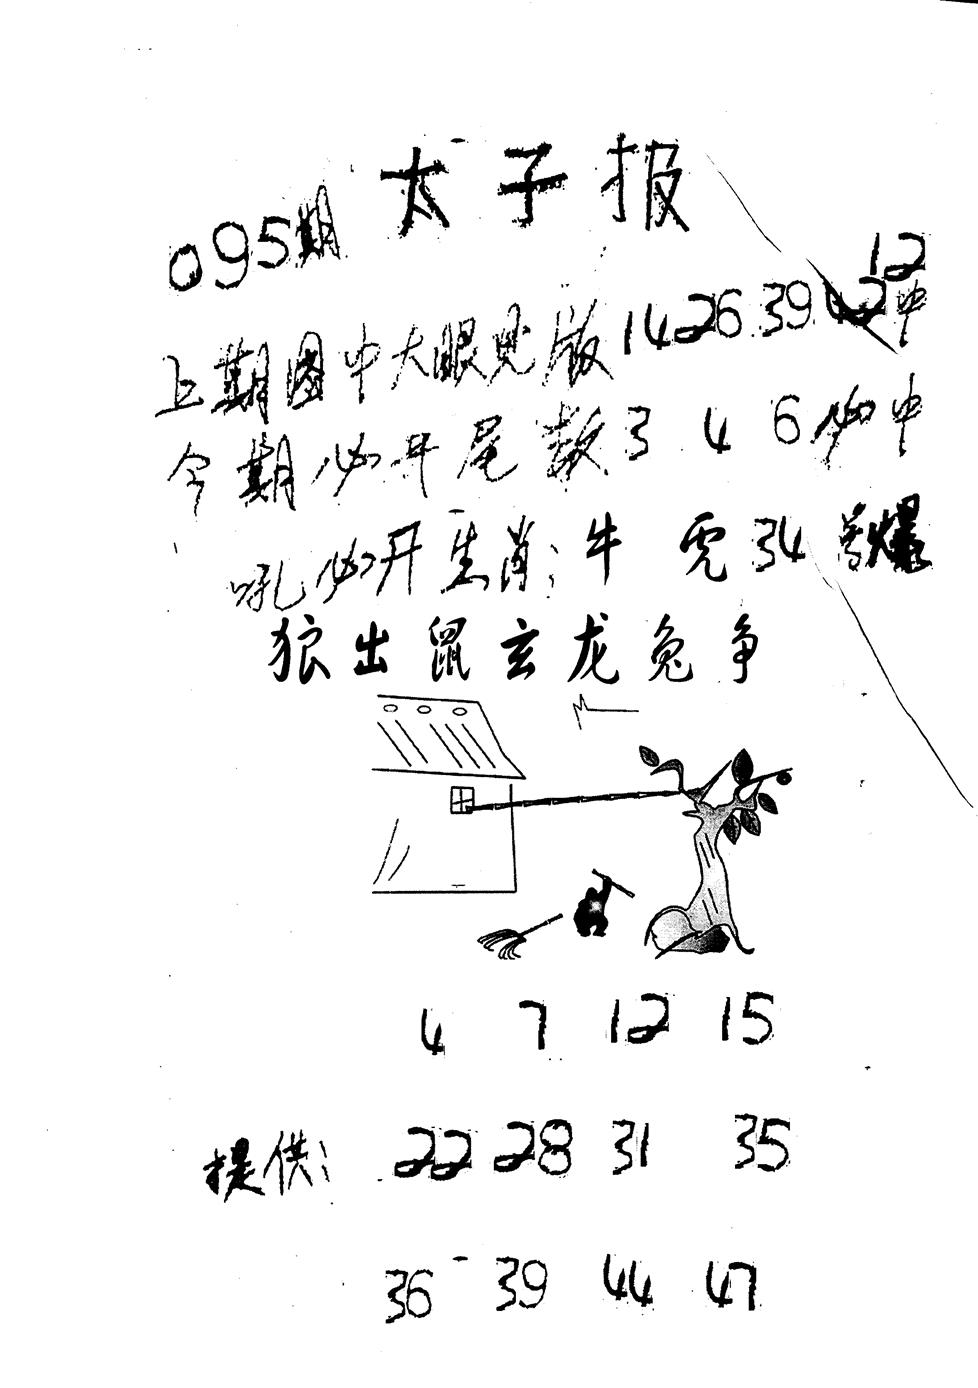 太子报
095期
12
上期图中大眼见版 14 26 39 42中
今期必开尾数 3 4 6 必中
吼必开生肖：牛 虎 34 爆
狼出鼠玄龙兔争
4 7 12 15
提供： 22 28 31 35
36 39 44 47